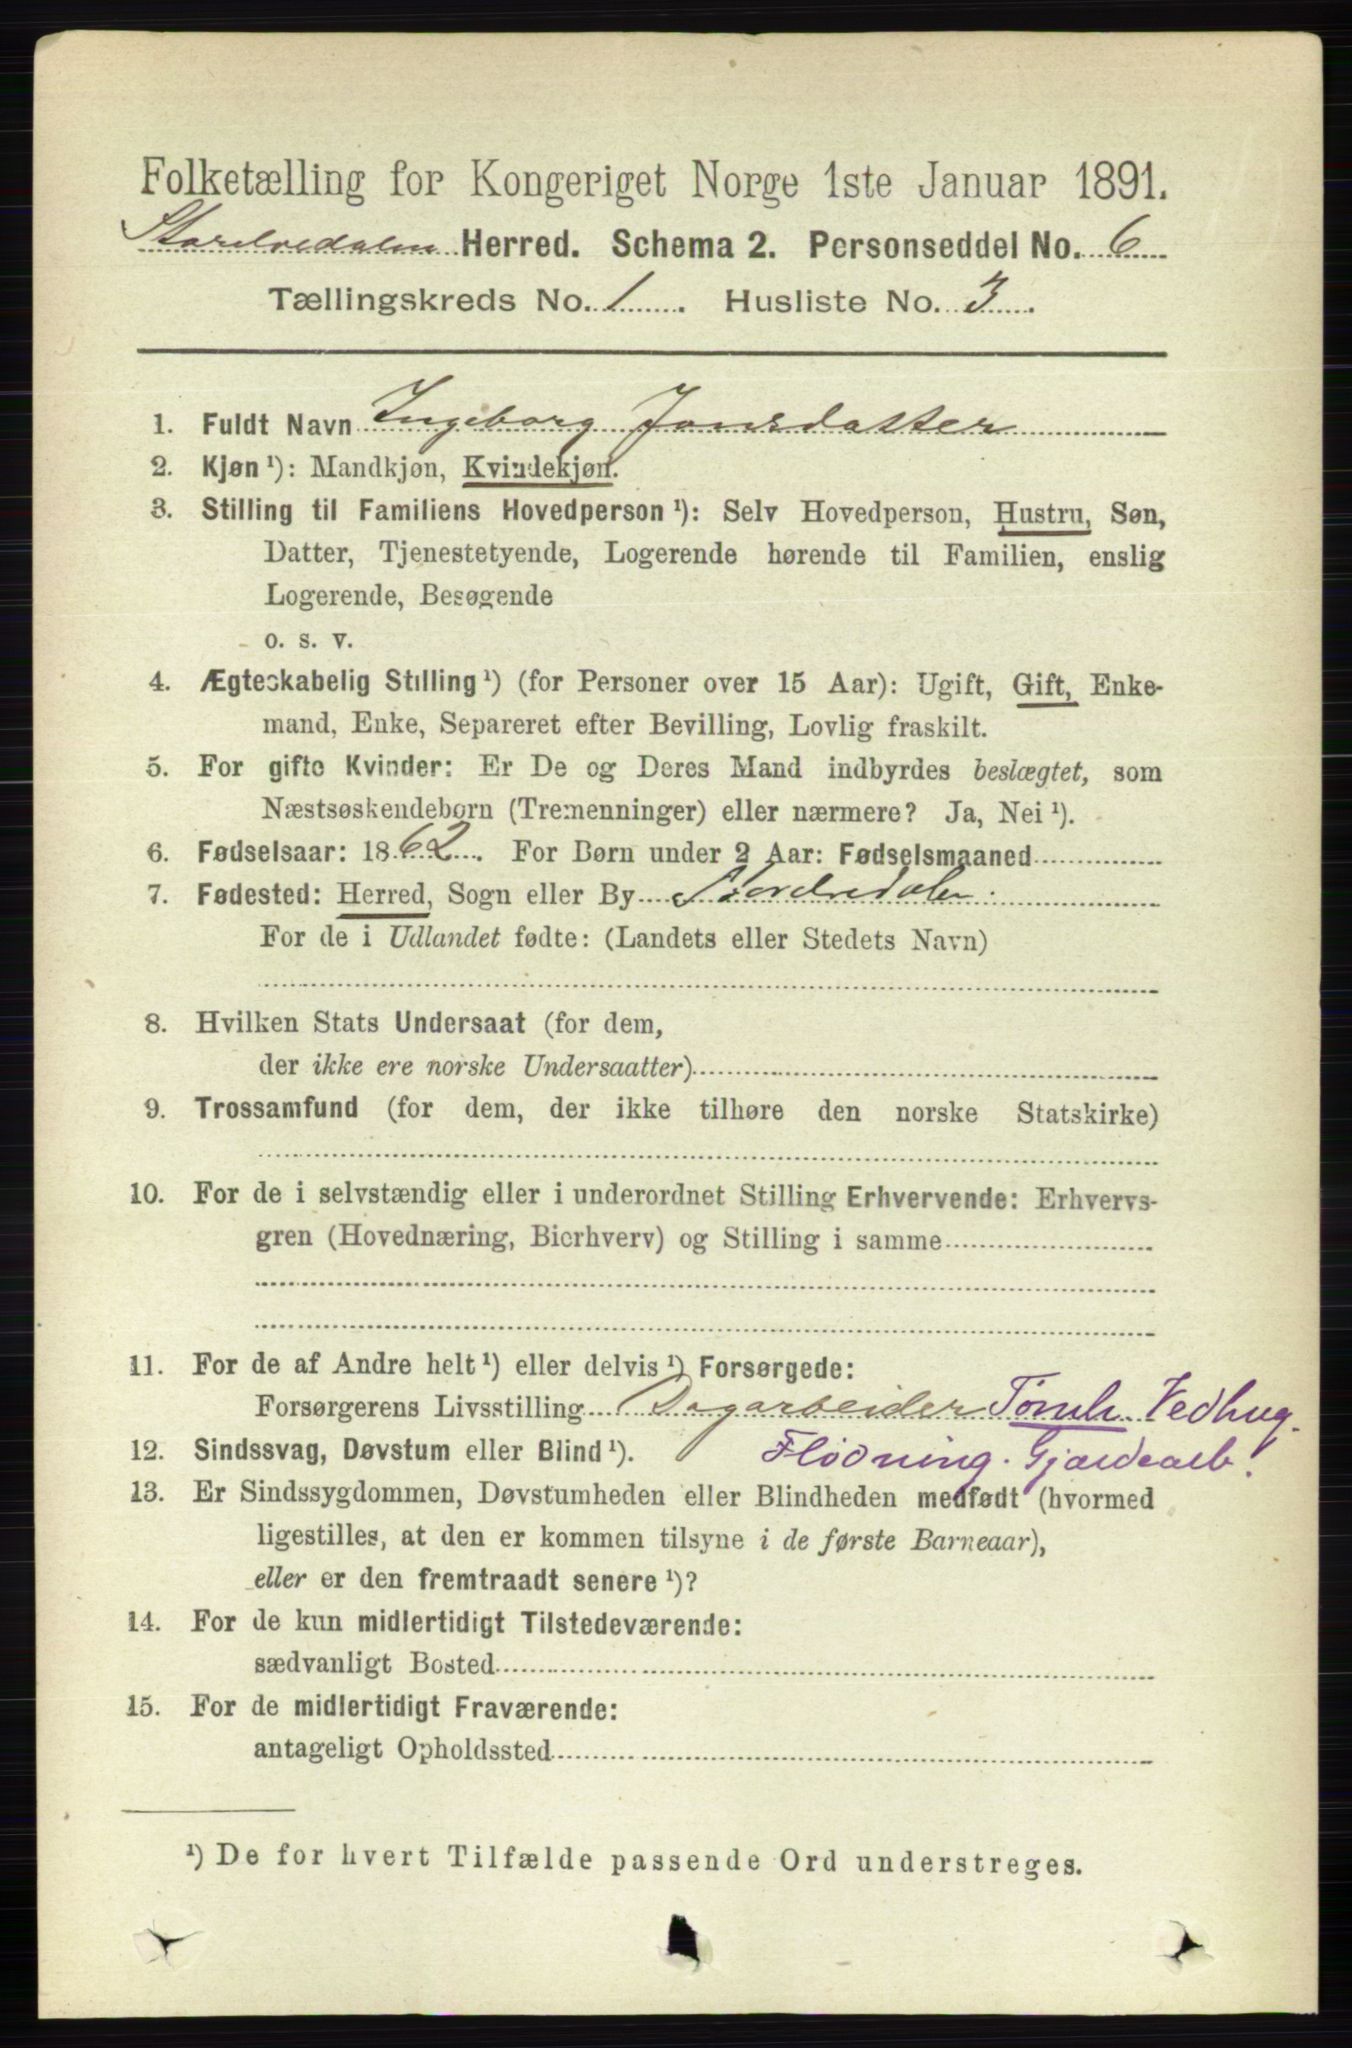 Folketælling for Kongeriget Norge 1ste Januar 1891.
Storelvedalen Herred. Schema 2. Personseddel No. 6
Tællingskreds No. 1. Husliste No. 3.
1. Fuldt Navn Ingeborg Jonsdatter
2. Kjøn ¹): Mandkjøn, Kvindekjøn.
3. Stilling til Familiens Hovedperson ¹): Selv Hovedperson, Hustru, Søn,
Datter, Tjenestetyende, Logerende hørende til Familien, enslig
Logerende, Besøgende
o. s. v.
4. Ægteskabelig Stilling ¹) (for Personer over 15 Aar): Ugift, Gift, Enke-
mand, Enke, Separeret efter Bevilling, Lovlig fraskilt.
5. For gifte Kvinder: Er De og Deres Mand indbyrdes beslægtet, som
Næstsøskendebørn (Tremenninger) eller nærmere? Ja, Nei ¹).
6. Fødselsaar: 1862. For Børn under 2 Aar: Fødselsmaaned
7. Fødested: Herred, Sogn eller By Storelvedalen.
For de i Udlandet fødte: (Landets eller Stedets Navn)
8. Hvilken Stats Undersaat (for dem,
der ikke ere norske Undersaatter)
9. Trossamfund (for dem, der ikke tilhøre den norske Statskirke)
10. For de i selvstændig eller i underordnet Stilling Erhvervende: Erhvervs-
gren (Hovednæring, Bierhverv) og Stilling i samme
11. For de af Andre helt ¹) eller delvis ¹) Forsørgede:
Forsørgerens Livsstilling Dagarbeider Tømh. Vedhug.
12. Sindssvag, Døvstum eller Blind ¹). Flødning. Gjærdearb.
13. Er Sindssygdommen, Døvstumheden eller Blindheden medfødt (hvormed
ligestilles, at den er kommen tilsyne i de første Barneaar),
eller er den fremtraadt senere ¹)?
14. For de kun midlertidigt Tilstedeværende:
sædvanligt Bosted
15. For de midlertidigt Fraværende:
antageligt Opholdssted
¹) De for hvert Tilfælde passende Ord understreges.